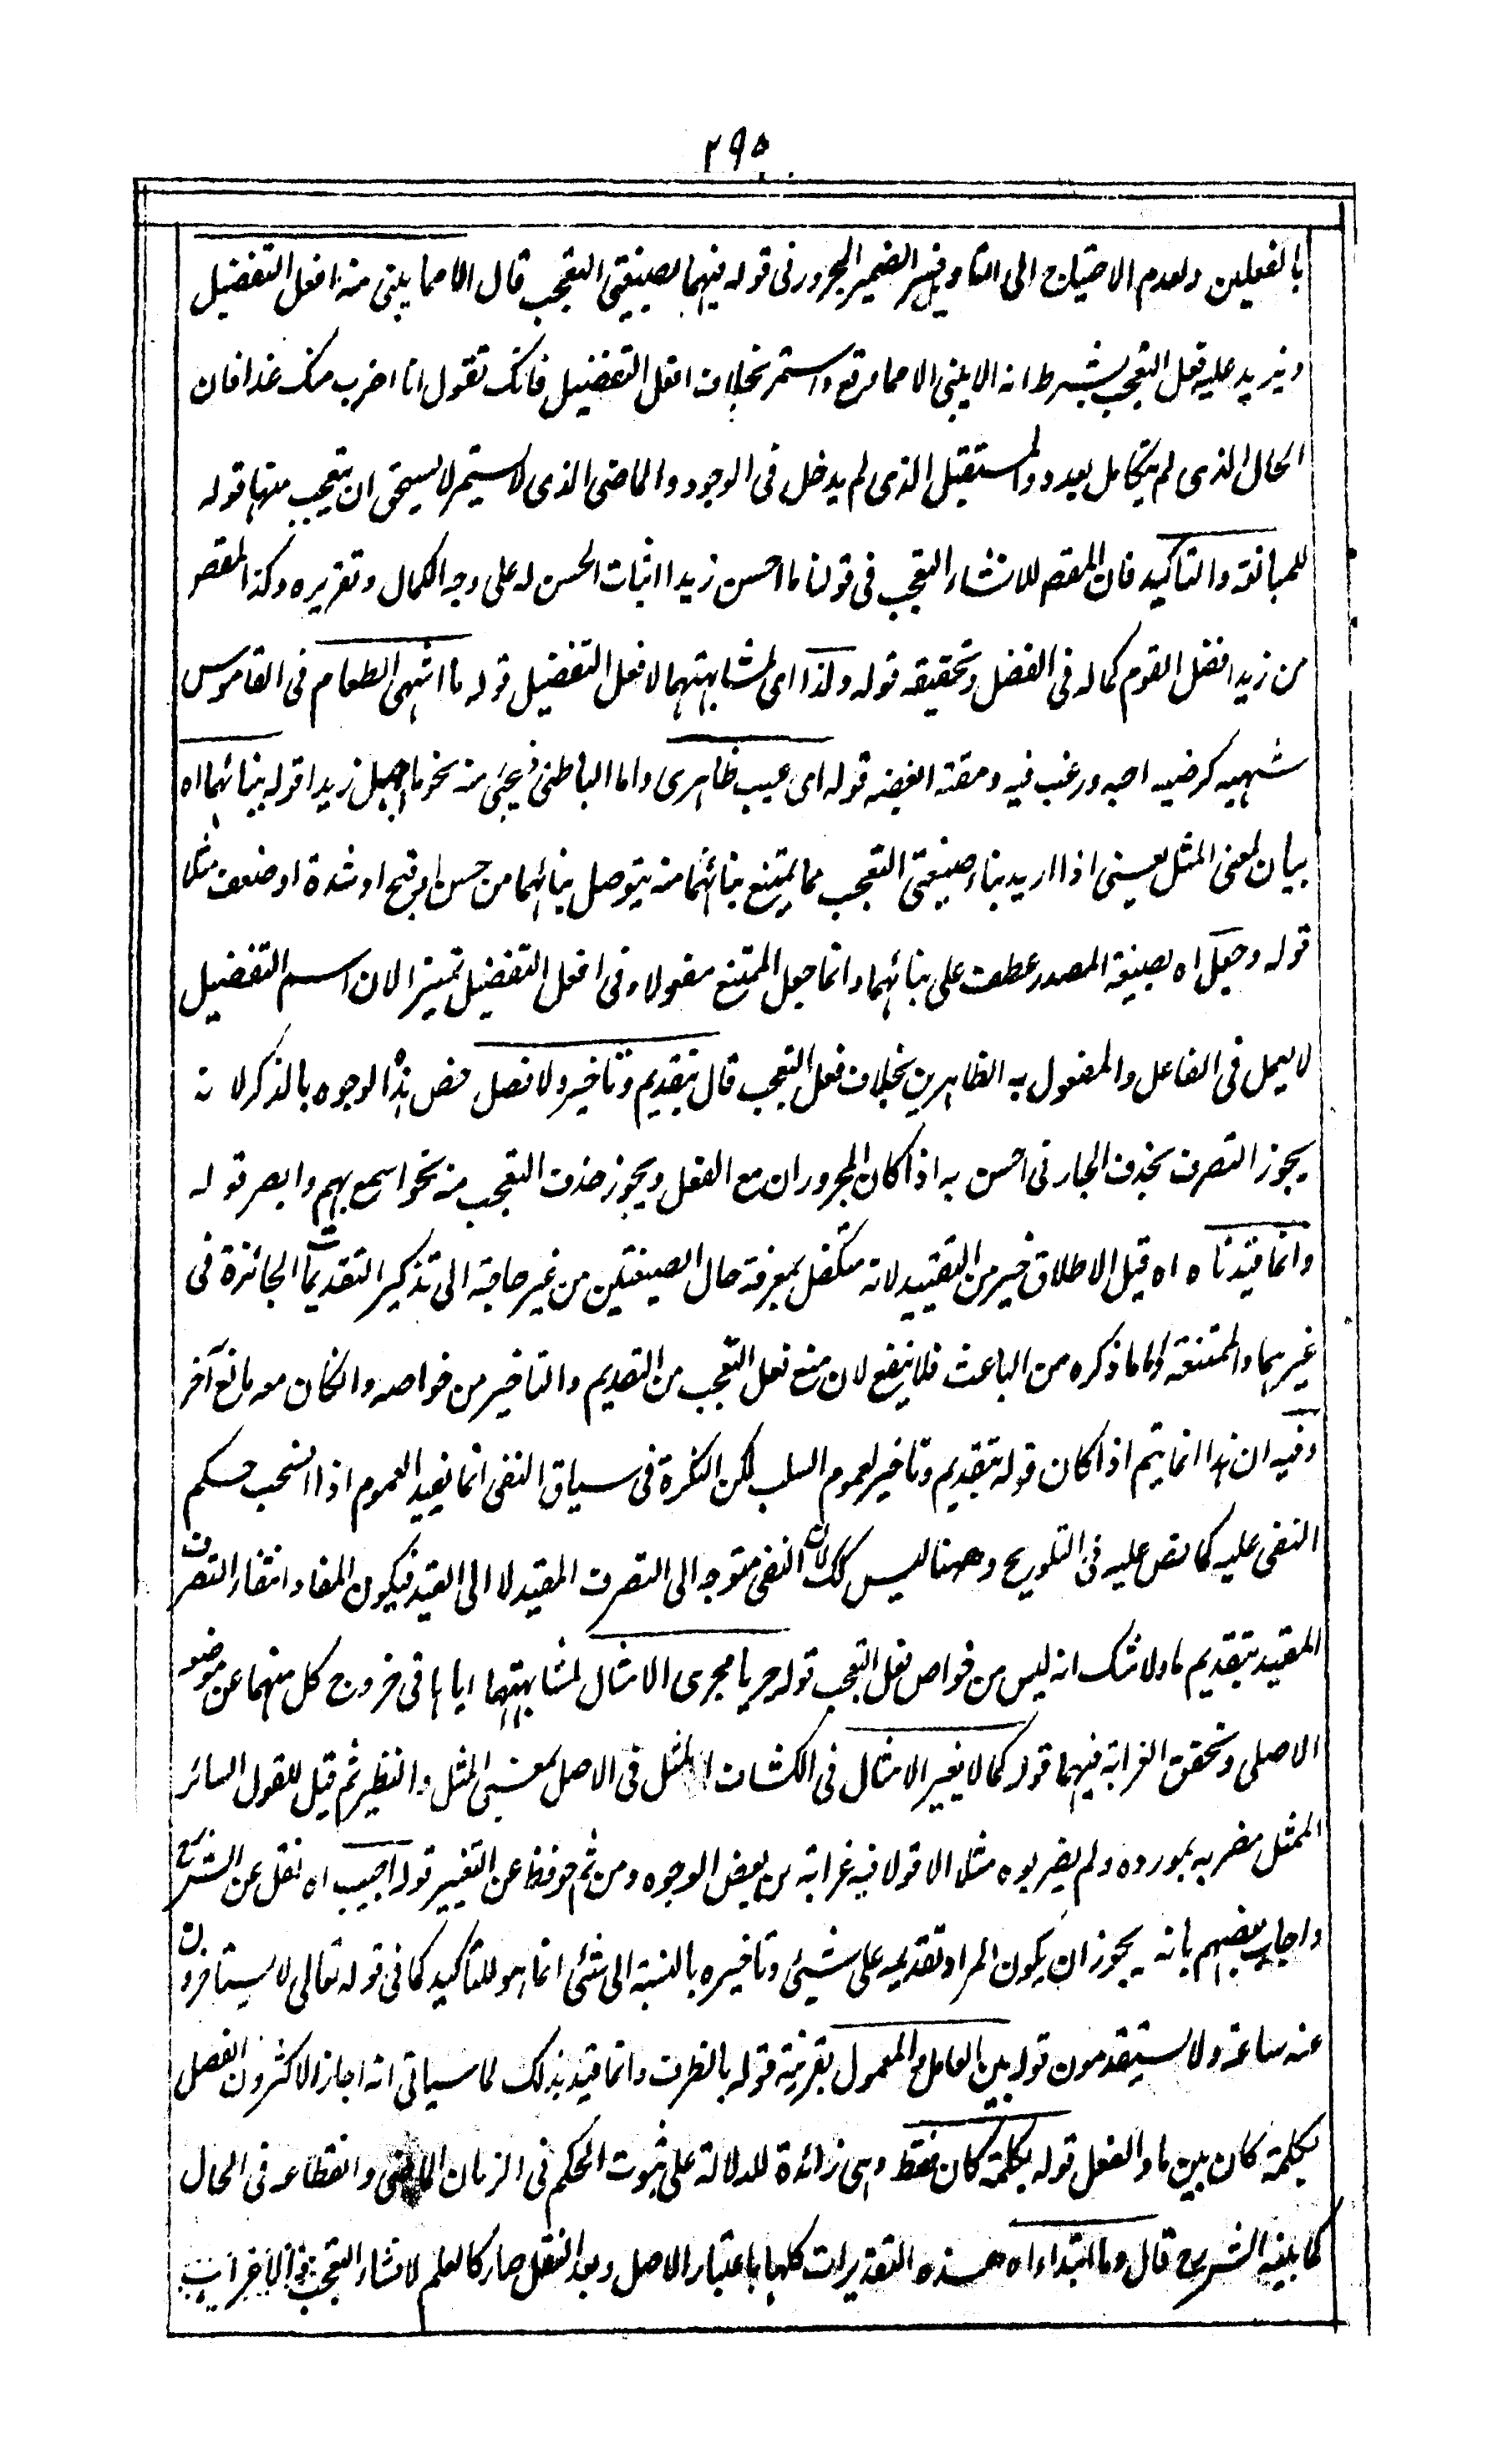 ٢٩٥
بالفعلين ولعدم الاحتياج الى التاويل فسر الضمير المجرور فى قوله فيهما بصيغتى التعجب قال الا مما يبنى منه افعل التفضيل
ويزيد عليه فعل التعجب بشرط انه لا يبنى الا مما وقع واستمر بخلاف افعل التفضيل فانك تقول انا اضرب منك غدا فان
الحال الذى لم يتكامل بعد والمستقبل الذى لم يدخل فى الوجود والماضى الذى لا يستمر لا يستحق ان يتعجب منها قوله
للمبالغة والتاكيد فان المقصم للانشاء التعجب فى قولنا ما احسن زيدا اثبات الحسن له على وجه الكمال وتقريره وكذا المقصر
من زيد افضل القوم كماله فى الفضل وتحقيقه قوله ولذا اى لمشابهتهما لافعل التفضيل قوله ما اشهى الطعام فى القاموس
شهيه كرضيه احبه ورغب فيه ومقته ابغضه قوله اى عيب ظاهرى واما الباطنى فيجئ منه نحو ما اجهل زيدا قوله بنائهما اه
بيان لمعنى المثل يعنى اذا اريد بناء صيغتى التعجب مما يمتنع بنائهما منه يتوصل بنائهما من حسن او قبح او شدة او ضعف مثلا
قوله وجعل اه بصيغة المصدر عطف على بنائهما وانما جعل الممتنع مفعولا وفى افعل التفضيل تميزا لان اسم التفضيل
لا يعمل فى الفاعل والمفعول به الظاهرين بخلاف فعل التعجب قال بتقديم وتاخير ولا فصل خص هذه الوجوه بالذكر لانه
يجوز التصرف بحذف الجار فى احسن به اذا كان المجرور ان مع الفعل ويجوز حذف التعجب منه نحو اسمع بهم وابصر قوله
وانما قيدناه اه قيل الاطلاق خير من التقييد لانه متكفل بمعرفة حال الصيغتين من غير حاجة الى تذكير التقديمات الجائزة فى
غيرهما والممتنعة واما ما ذكره من الباعث فلا ينفع لان منع فعل التعجب من التقديم والتاخير من خواصه وان كان معه مانع آخر
وفيه ان هذا انما يتم اذا كان قوله بتقديم وتاخير لعموم السلب لكن النكرة فى سياق النفى انما يفيد العموم اذا انسحب حكم
النفى عليه كما نص عليه فى التلويح وههنا ليس كك لان النفى متوجه الى التصرف المقيد لا الى القيد فيكون المفاد انتفاء التصرف
المقيد بتقديم ما ولا شك انه ليس من خواص فعل التعجب قوله جريا مجرى الامثال لمشابهتهما اياها فى خروج كل منهما عن موضعه
الاصلى وتحقق الغرابة فيهما قوله كما لا يغير الامثال فى الكشاف المثل فى الاصل بمعنى المثل والنظير ثم قيل للقول السائر
الممثل مضربه بمورده ولم يضربوه مثلا الا قولا فيه غرابة من بعض الوجوه ومن ثم حوفظ عن التغيير قوله اجيب اه نقل عن الشرح
واجاب بعضهم بانه يجوز ان يكون المراد تقديمه على شيئ وتاخيره بالنسبة الى شئ انما هو للتاكيد كما فى قوله تعالى لا يستاخرون
عنه ساعة ولا يستقدمون قوله بين العامل والمعمول بقرينة قوله بالظرف وانما قيد بذلك لما سياتى انه اجاز الاكثرون الفصل
بكلمة كان بين ما والفعل قوله بكلمة كان فقط وهى زائدة للدلالة على ثبوت الحكم فى الزمان الماضى وانقطاعه فى الحال
كما بينه الشرح قال وما ابتداء اه هذه التقديرات كلها باعتبار الاصل وبعد النقل صار كالعلم لانشاء التعجب